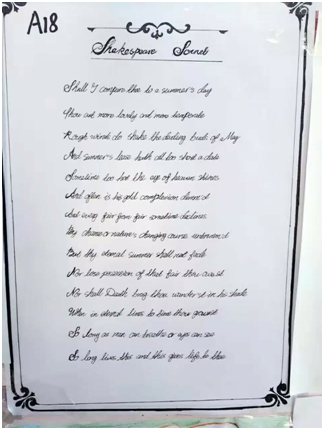 A18
Shakespeare Sonnet
Shall I compare thee to a summer's day
Thou art more lovely and more temperate
Rough winds do shake the darling buds of May
And summer's lease hath all too short a date
Sometime too hot the eye of heaven shines
And often is his gold complexion dimm'd
And every fair from fair sometime declines
By chance or nature's changing course untrimm'd
But thy eternal summer shall not fade
Nor lose possession of that fair thou
Nor shall Death brag thou wander'st in his shade
When in eternal lines to time thou
So long as men can breathe or eyes can see
So long lives this and this gives life to thee